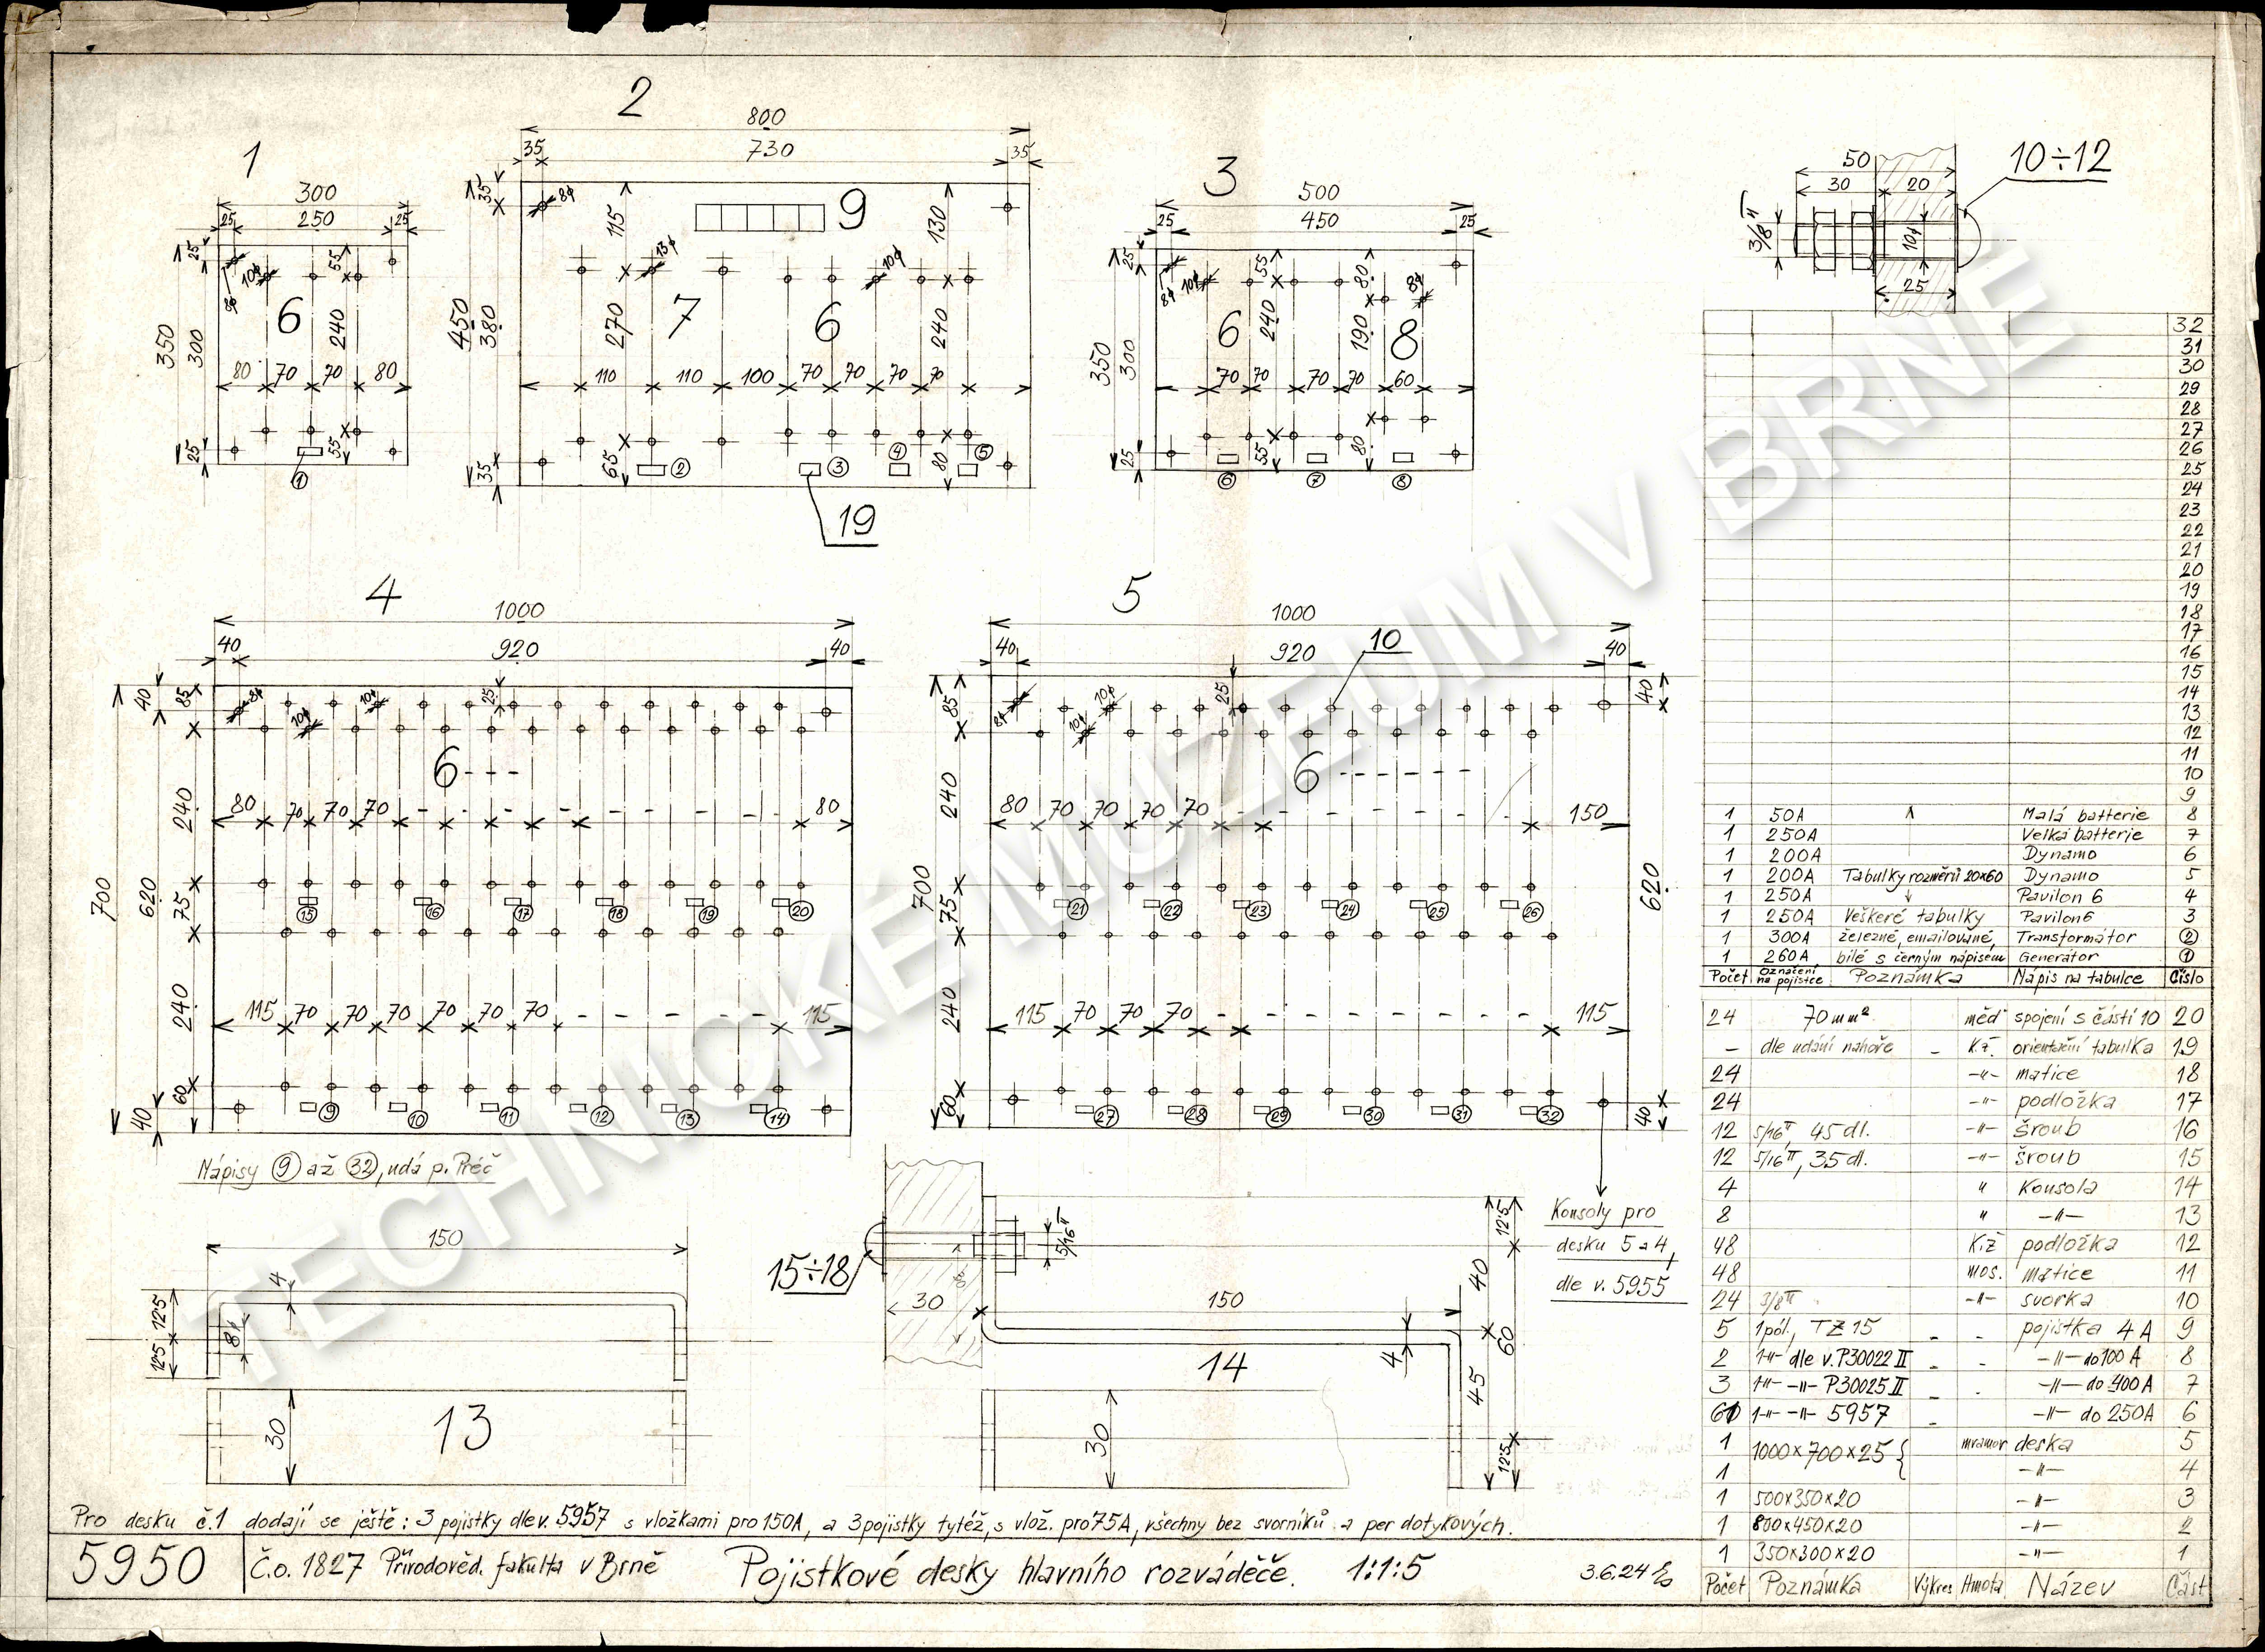 1
300
25 250 25
25
8ϕ
10ϕ
55
6
350
300
240
80 70 70 80
25
55
①
2
800
35 730 35
35
8ϕ
115
9
130
13ϕ
10ϕ
450
380
270
7
6
240
110 110 100 70 70 70 70
35
65
②
③
④
80
⑤
19
3
500
25 450 25
25
8ϕ
10ϕ
55
80
8ϕ
350
300
6
240
190
8
70 70 70 70 60
25
55
80
⑥
⑦
⑧
10÷12
50
30 20
3/8"
10ϕ
25
4
1000
40 920 40
40
85
8ϕ
10ϕ
10ϕ
25
6---
80 70 70 70 80
240
700
620
75
⑮ ⑯ ⑰ ⑱ ⑲ ⑳
240
115 70 70 70 70 70 115
60
40
⑨ ⑩ ⑪ ⑫ ⑬ ⑭
Nápisy ⑨ až ㉜, udá p. Préč
5
1000
40 920 40
10
85
8ϕ
10ϕ
10ϕ
25
40
6------
80 70 70 70 70 150
240
700
620
75
㉑ ㉒ ㉓ ㉔ ㉕ ㉖
240
115 70 70 70 115
60
40
㉗ ㉘ ㉙ ㉚ ㉛ ㉜
Konsoly pro
desku 5 a 4,
dle v. 5955
150
4
12·5
12·5
8ϕ
30
13
15÷18
5/16"
30
150
12·5
40
60
4
14
45
12·5
30
32
31
30
29
28
27
26
25
24
23
22
21
20
19
18
17
16
15
14
13
12
11
10
9
1 50A Malá batterie 8
1 250A Velká batterie 7
1 200A Dynamo 6
1 200A Tabulky rozměrů 20x60 Dynamo 5
1 250A Pavilon 6 4
1 250A Veškeré tabulky Pavilon 6 3
1 300A železné, emailované, Transformátor ②
1 260A bílé s černým nápisem Generátor ①
Počet Označení na pojistce Poznámka Nápis na tabulce Číslo
24 70 mm² měď spojení s částí 10 20
– dle udání nahoře – K.ž. orientační tabulka 19
24 -"- matice 18
24 -"- podložka 17
12 5/16", 45 dl. -"- šroub 16
12 5/16", 35 dl. -"- šroub 15
4 " Konsola 14
8 " -"- 13
48 K.ž podložka 12
48 mos. matice 11
24 3/8" -"- svorka 10
5 1pól., TŽ 15 - - pojistka 4 A 9
2 1-"- dle v. P30022 II - - -"- do 100 A 8
3 1-"- -"- P30025 II - - -"- do 400 A 7
60 1-"- -"- 5957 - -"- do 250A 6
1 1000 x 700 x 25 { mramor deska 5
1 -"- 4
1 500x350x20 -"- 3
1 800x450x20 -"- 2
1 350x300x20 -"- 1
Počet Poznámka Výkres Hmota Název Část
Pro desku č.1 dodají se ještě: 3 pojistky dle v. 5957 s vložkami pro 150A, a 3 pojistky tytéž, s vlož. pro 75A, všechny bez svorníků a per dotykových.
5950 Č.o. 1827 Přírodověd. fakulta v Brně Pojistkové desky hlavního rozváděče. 1:1:5 3.6.24
TECHNICKÉ MUZEUM V BRNĚ